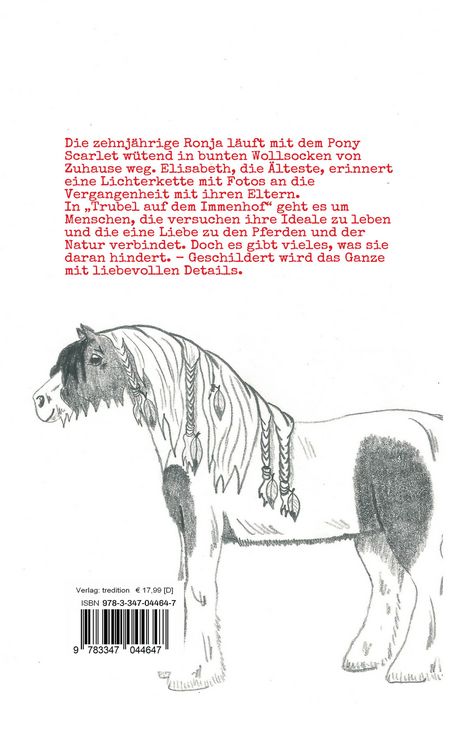 Die zehnjährige Ronja läuft mit dem Pony
Scarlet wütend in bunten Wollsocken von
Zuhause weg. Elisabeth, die Älteste, erinnert
eine Lichterkette mit Fotos an die
Vergangenheit mit ihren Eltern.
In „Trubel auf dem Immenhof“ geht es um
Menschen, die versuchen ihre Ideale zu leben
und die eine Liebe zu den Pferden und der
Natur verbindet. Doch es gibt vieles, was sie
daran hindert. – Geschildert wird das Ganze
mit liebevollen Details.
Verlag: tredition € 17,99 [D]
ISBN 978-3-347-04464-7
9 783347 044647